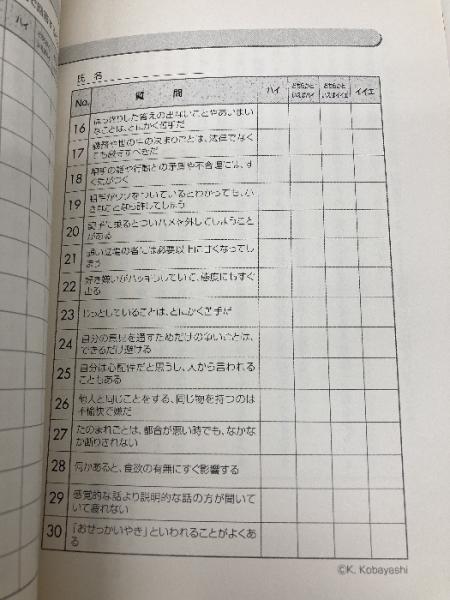 ハイ
氏 名
No. 質 問 ハイ どちらかと いえばハイ どちらかと いえばイイエ イイエ
16 はっきりした答えの出ないことやあいまい
なことは、とにかく苦手だ
17 職務や世の中の決まりごとは、法律でなく
ても厳守すべきだ
18 相手の話や行動との矛盾や不合理には、す
ぐ気がつく
19 相手がウソをついているとわかっても、小
さなことなら許してしまう
20 調子に乗るとついハメを外してしまうこと
がある
21 弱い立場の者には必要以上に甘くなってし
まう
22 好き嫌いがハッキリしていて、態度にもすぐ
出る
23 じっとしていることは、とにかく苦手だ
24 自分の意見を通すためだけの争いごとは、
できるだけ避ける
25 自分は心配性だと思うし、人から言われる
こともある
26 他人と同じことをする、同じ物を持つのは
不愉快で嫌だ
27 たのまれごとは、都合が悪い時でも、なかな
か断りきれない
28 何かあると、食欲の有無にすぐ影響する
29 感覚的な話より説明的な話の方が聞いて
いて疲れない
30 「おせっかいやき」といわれることがよくあ
る
©K. Kobayashi